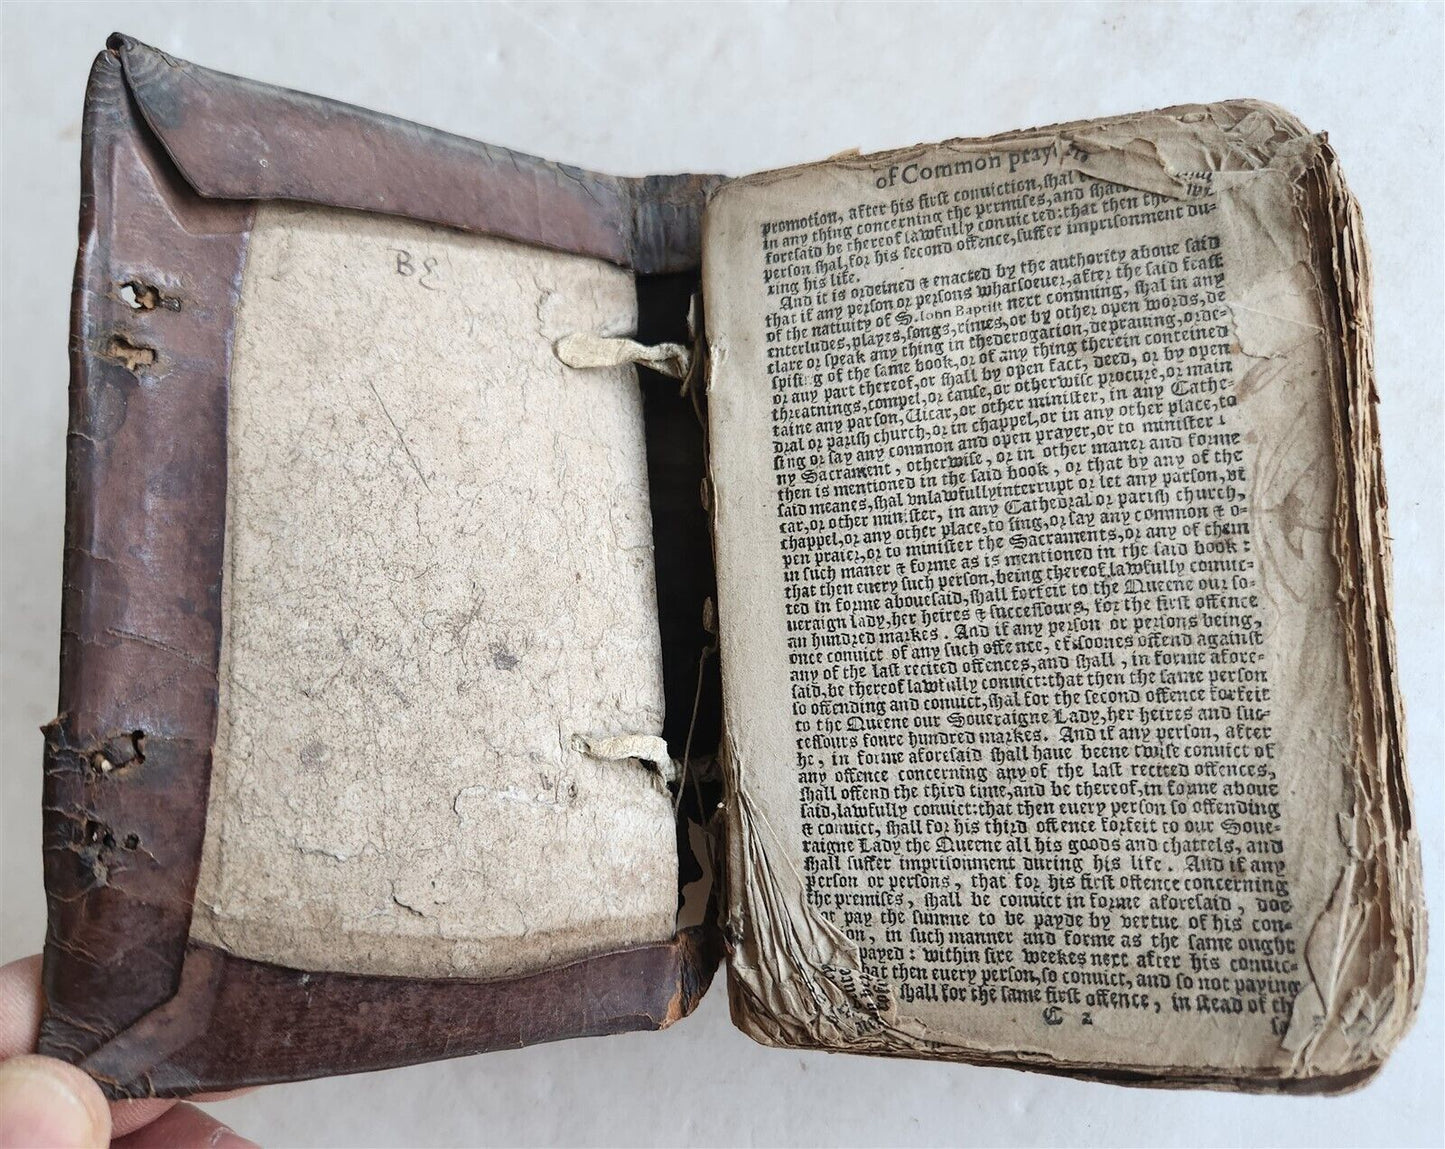 B
of Common pray
promotion, after his first conuiction, shal
in any thing concerning the premises, and shall
foresaid be thereof lawfully conuicted: that then the
person shal, for his second offence, suffer imprisonment du-
ring his life.
And it is ordeined & enacted by the authority aboue said
that if any person or persons whatsoeuer, after the said feast
of the natiuity of S. Iohn Baptist next comming, shal in any
enterludes, playes, songs, rimes, or by other open words, de
clare or speak any thing in the derogation, deprauing, or de-
spising of the same book, or of any thing therein conteined
or any part thereof, or shall by open fact, deed, or by open
threatnings, compel, or cause, or otherwise procure, or main
taine any parson, Uicar, or other minister, in any Cathe-
dral or parish church, or in chappel, or in any other place, to
sing or say any common and open prayer, or to minister
ny Sacrament, otherwise, or in other maner and forme
then is mentioned in the said book, or that by any of the
said meanes, shal vnlawfully interrupt or let any parson, vi
car, or other minister, in any Cathedral or parish church,
chappel, or any other place, to sing, or say any common & o-
pen praier, or to minister the Sacraments, or any of them
in such maner & forme as is mentioned in the said book:
that then euery such person, being thereof lawfully conuic-
ted in forme abouesaid, shall forfeit to the Queene our so-
ueraign lady, her heires & successours, for the first offence
an hundred markes. And if any person or persons being,
once conuict of any such offence, eftsoones offend against
any of the last recited offences, and shall, in forme afore-
said, be thereof lawfully conuict: that then the same person
so offending and conuict, shal for the second offence forfeit
to the Queene our Soueraigne Lady, her heires and suc-
cessours foure hundred markes. And if any person, after
he, in forme aforesaid shall haue beene twise conuict of
any offence concerning any of the last recited offences,
shall offend the third time, and be thereof, in forme aboue
said, lawfully conuict: that then euery person so offending
& conuict, shall for his third offence forfeit to our Soue-
raigne Lady the Queene all his goods and chattels, and
shall suffer imprisonment during his life. And if any
person or persons, that for his first offence concerning
the premises, shall be conuict in forme aforesaid, doe
not pay the summe to be payde by vertue of his con-
on, in such manner and forme as the same ought
payed: within sixe weekes next after his conuic-
hat then euery person, so conuict, and so not paying
shall for the same first offence, in stead of th
C 2